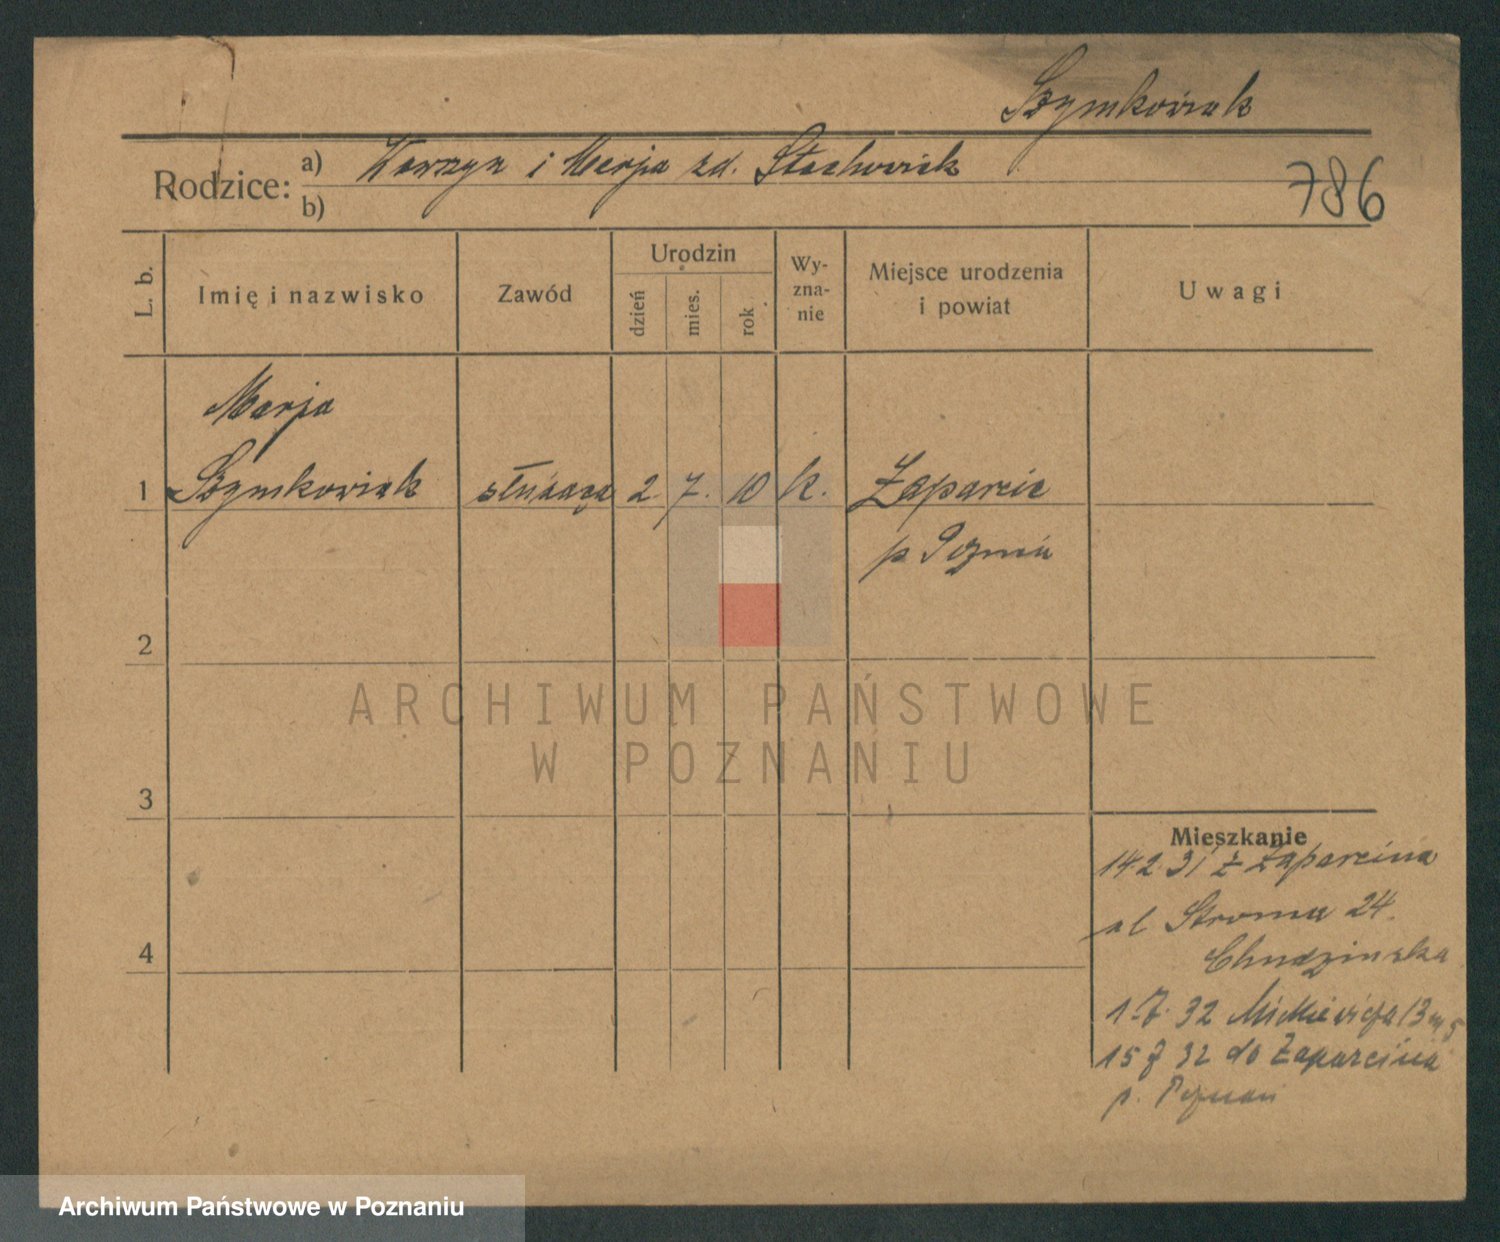 Szymkowiak
Rodzice: a) Wawrzyn i Marja zd. Stachowiak
b)
786
L. b.
Imię i nazwisko
Zawód
Urodzin
dzień
mies.
rok
Wy-
zna-
nie
Miejsce urodzenia
i powiat
Uwagi
Marja
1 Szymkowiak służąca 2. 7. 10 k. Żaparcin
p Poznań
2
ARCHIWUM PAŃSTWOWE
W POZNANIU
3
Mieszkanie
14 2. 31 z Żaparcina
ul Stroma 24.
Chudzinska
4
1. 7. 32 Mickiewicza 13 m 5
15 7 32 do Żaparcina
p. Poznań
Archiwum Państwowe w Poznaniu